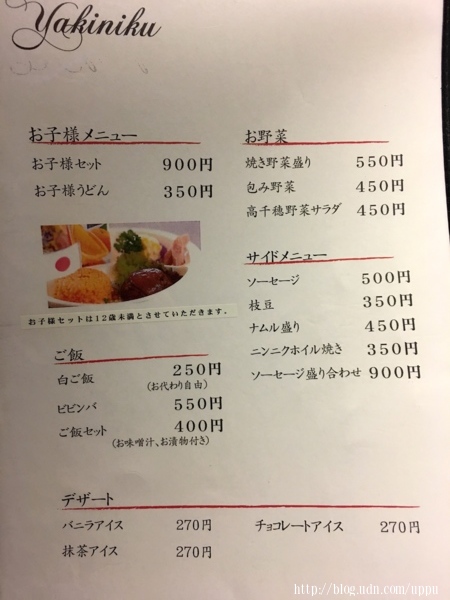 Yakiniku
お子様メニュー
お子様セット 900円
お子様うどん 350円
お子様セットは12歳未満とさせていただきます。
ご飯
白ご飯 250円
(お代わり自由)
ビビンバ 550円
ご飯セット 400円
(お味噌汁、お漬物付き)
お野菜
焼き野菜盛り 550円
包み野菜 450円
高千穂野菜サラダ 450円
サイドメニュー
ソーセージ 500円
枝豆 350円
ナムル盛り 450円
ニンニクホイル焼き 350円
ソーセージ盛り合わせ 900円
デザート
バニラアイス 270円
抹茶アイス 270円
チョコレートアイス 270円
http://blog.udn.com/uppn